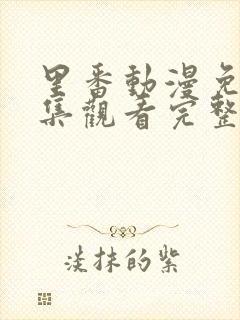 里番動漫免
集觀看完整
淡抹的紫